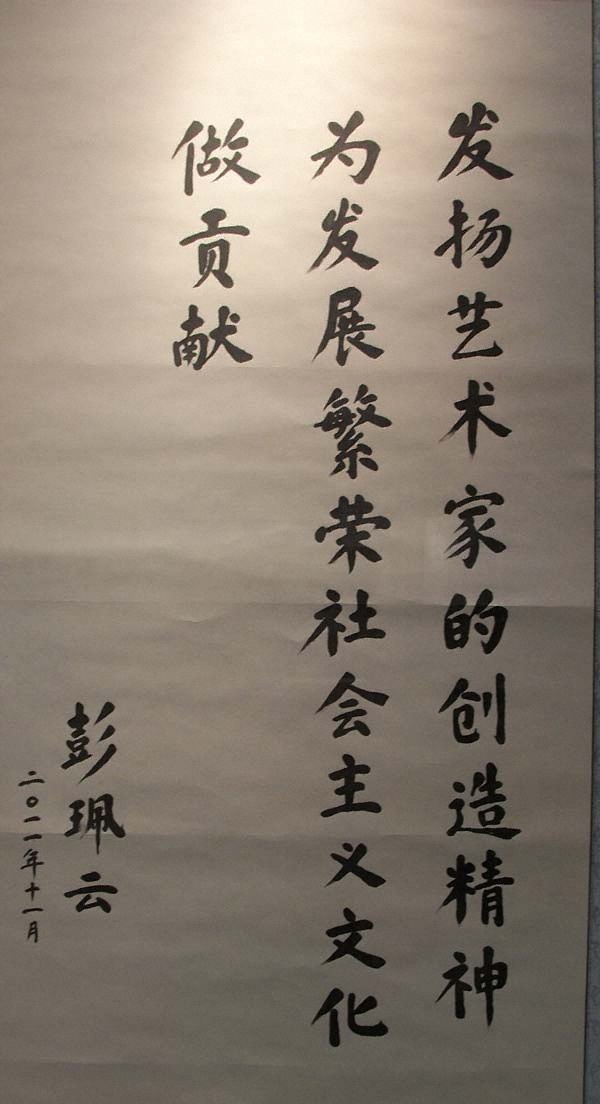 发扬艺术家的创造精神
为发展繁荣社会主义文化
做贡献
彭珮云
二〇一一年十一月